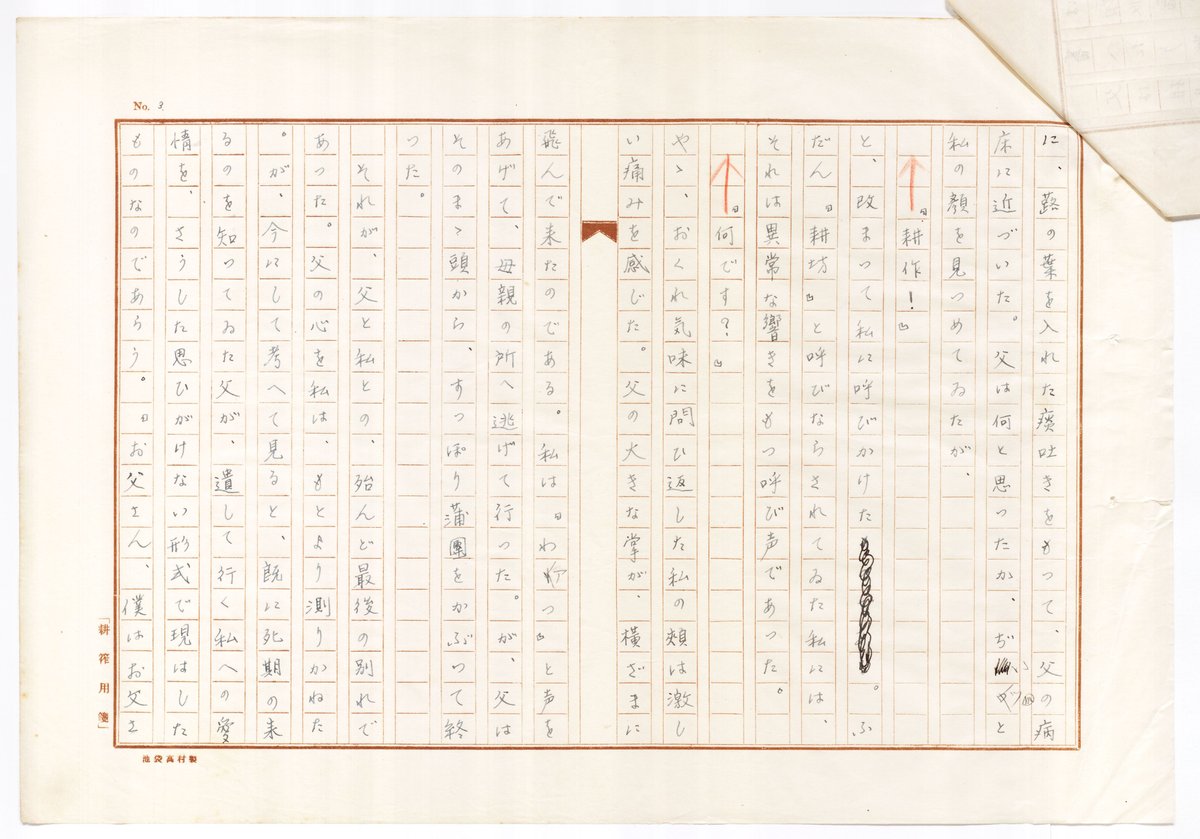 No. 3
に、蕗の葉を入れた痰吐きをもつて、父の病
床に近づいた。父は何と思ったか、ぢつと
私の顔を見つめてゐたが、
「耕作!」
と、改まつて私に呼びかけた。ふ
だん「耕坊」と呼びならされてゐた私には、
それは異常な響きをもつ呼び声であつた。
「何です?」
やゝ、おくれ気味に問ひ返した私の頬は激し
い痛みを感じた。父の大きな掌が、横ざまに
飛んで来たのである。私は「わアつ」と声を
あげて、母親の所へ逃げて行つた。が、父は
そのまゝ頭から、すつぽり蒲團をかぶつて終
つた。
それが、父と私との、殆んど最後の別れで
あつた。父の心を私は、もとより測りかねた
。が、今にして考へて見ると、既に死期の来
るのを知つてゐた父が、遺して行く私への愛
情を、さうした思ひがけない形式で現はした
ものなのであらう。「お父さん、僕はお父さ
「耕筰用箋」
池袋高村製